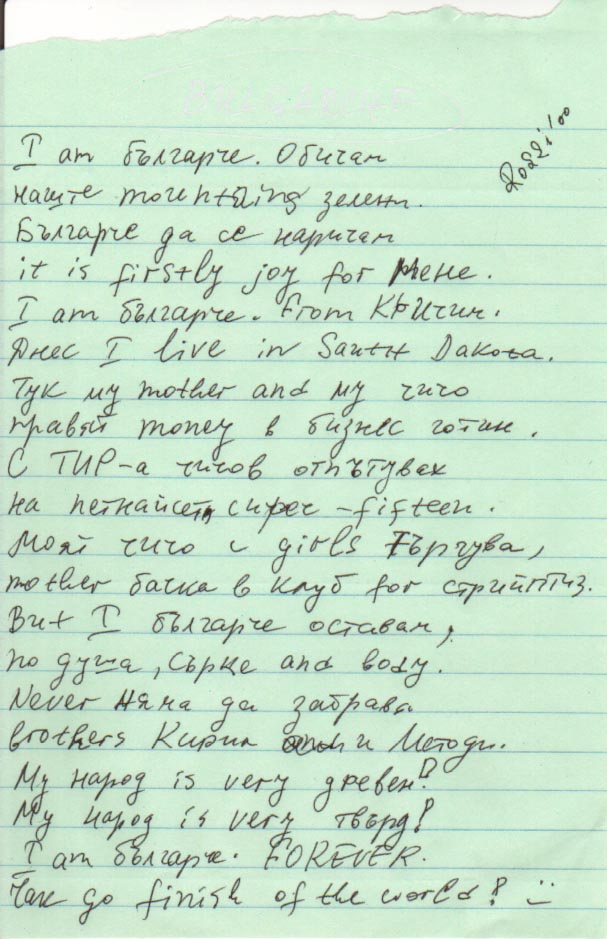 BULGARCHE
Rossi100
I am българче. Обичам
наште mountaing зелени.
Българче да се наричам
it is firstly joy for мене.
I am българче. From Кричим.
Днес I live in Sauth Dakoта.
Тук my mother and my чичо
правят money в бизнес готин.
С ТИР-а чичов отпътувах
на петнайсет, сиреч – fifteen.
Моят чичо с girls търгува,
mother бачка в клуб for стрийптиз.
But I българче оставам,
по душа, сърце and body.
Never няма да забрава
brothers Кирил и Методи.
My народ is very древен!
My народ is very твърд!
I am българче. FOREVER.
Чак до finish of the world!